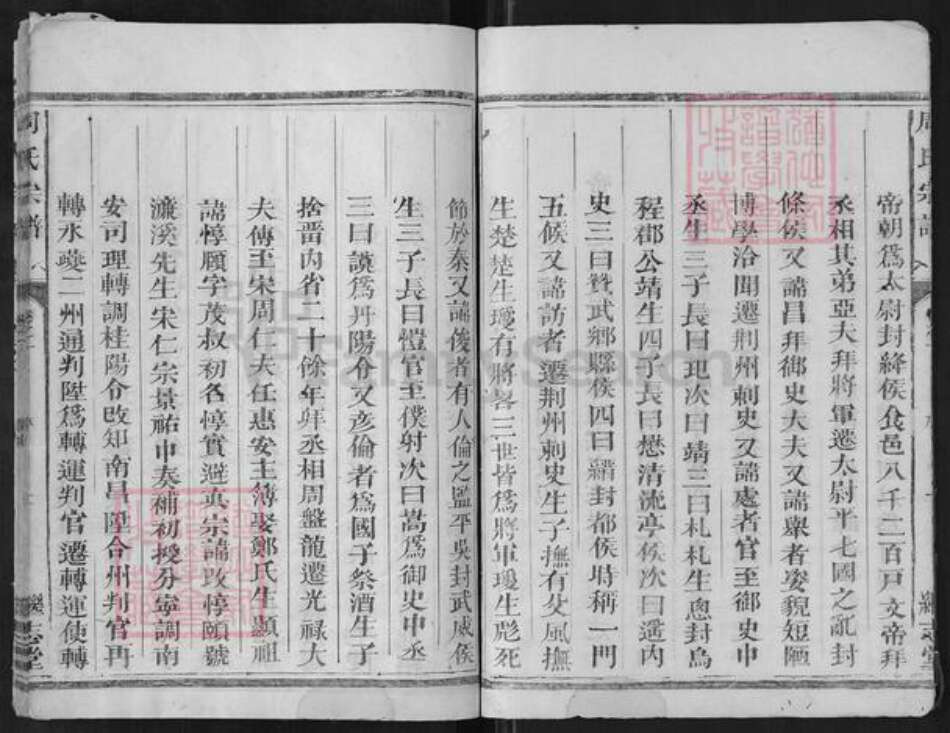 周氏宗譜
帝朝爲太尉封絳侯食邑八千二百戸文帝拜
丞相其弟亞夫拜將軍遷太尉平七國之亂封
條侯又諱昌拜御史大夫又諱舉者姿貌短陋
博學洽聞遷荆州刺史又諱處者官至御史中
丞生三子長曰玘次曰靖三曰札札生悤封烏
程郡公靖生四子長曰懋清流亭侯次曰邁内
史三曰贊武鄉縣侯四曰縉封都侯時稱一門
五候又諱訪者遷荆州刺史生子撫有父風撫
生楚楚生瓊有將畧三世皆爲將軍瓊生彪死
節於秦又諱俊者有人倫之鑑平吳封武威侯
生三子長曰愷官至僕射次曰嵩爲御史中丞
三曰謨爲丹陽令又彦倫者爲國子祭酒生子
捨晋内省二十餘年拜丞相周盤龍遷光祿大
夫傳至宋周仁夫任惠安主簿娶鄭氏生顯祖
諱惇頤字茂叔初名惇實避英宗諱改惇頤號
濂溪先生宋仁宗景祐中奏補初授分寧調南
安司理轉調桂陽令改知南昌陞合州判官再
轉永䕫二州通判陞爲轉運判官遷轉運使轉
周氏宗譜